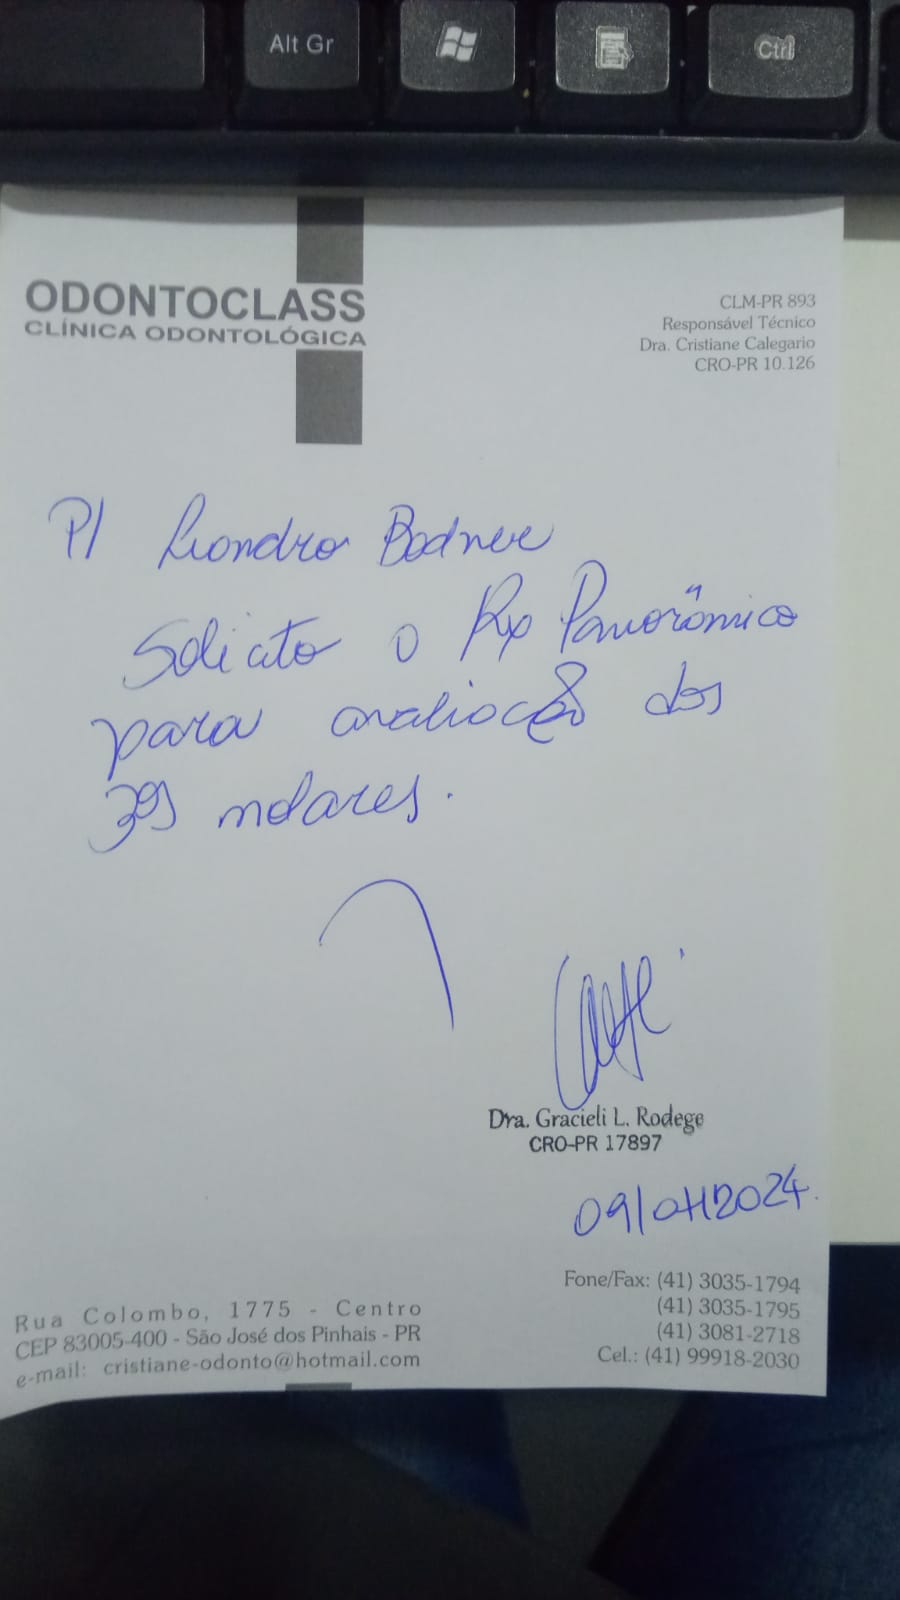 Alt Gr
Ctrl
ODONTOCLASS
CLÍNICA ODONTOLÓGICA
CLM-PR 893
Responsável Técnico
Dra. Cristiane Calegario
CRO-PR 10.126
P/ Leandro Bodner
Solicito o Rx Panorâmico
para avaliação dos
3ºs molares.
Dra. Gracieli L. Rodege
CRO-PR 17897
2024.
Rua Colombo, 1775 - Centro
CEP 83005-400 - São José dos Pinhais - PR
e-mail: cristiane-odonto@hotmail.com
Fone/Fax: (41) 3035-1794
(41) 3035-1795
(41) 3081-2718
Cel.: (41) 99918-2030